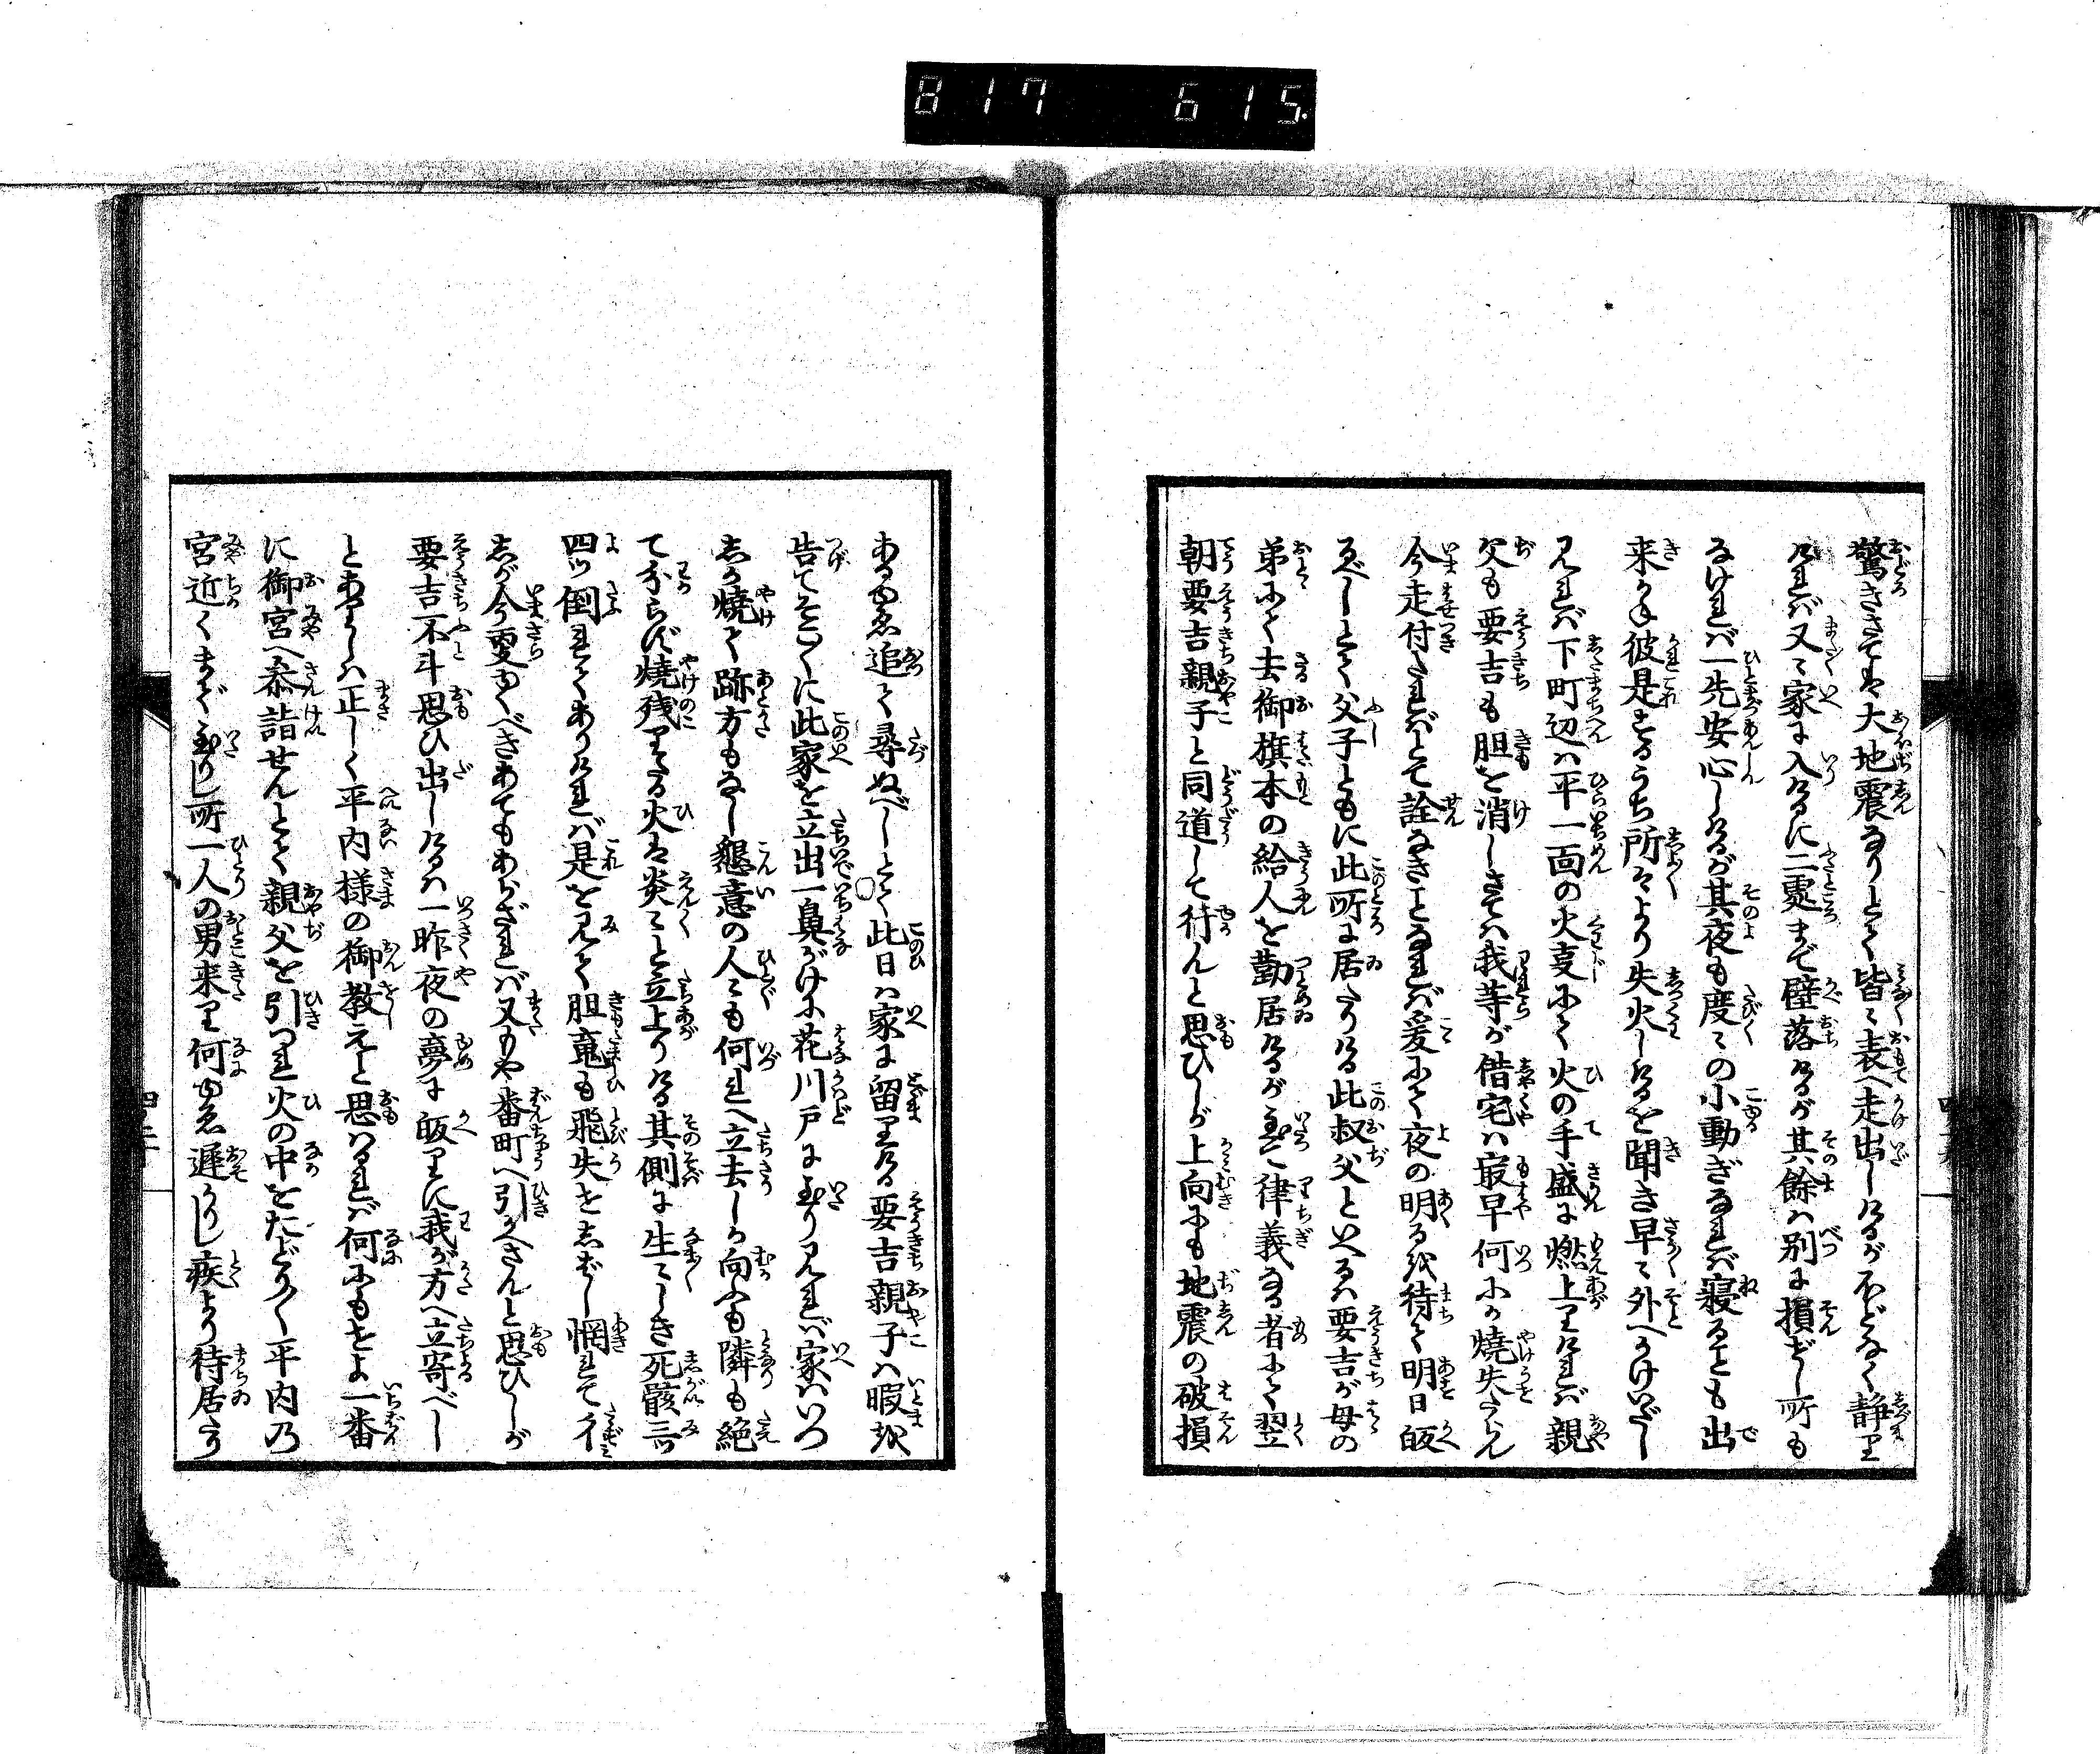 817 615.
驚きさても大地震なりとて皆々表へ走出しけるがほどなく静り
ければ又々家に入けるに二処まで壁落けるが其餘は別に損ぜし所も
なければ一先安心しけるが其夜も度々の小動ぎなれば寝もせず出
来かね彼是するうち所々より失火しけるを聞き早々外へかけいだし
見れば下町辺は平一面の火事にて火の手盛に燃上りければ親
父も要吉も胆を消しさては我等が借宅は最早何にか焼失さらん
今走付たればとて詮なきことなれば爰にて夜の明るを待て明日帰
るべしとて父子ともに此所に居たりける此叔父といへるは要吉が母の
弟にて去御旗本の給人を勤居けるが至て律義なる者にて翌
朝要吉親子と同道して待んと思ひしが上向にも地震の破損
あるゆゑ追て尋ぬべしとて此日は家に留りける要吉親子は暇を
告てそこ〳〵に此家を立出一鼻がけに花川戸に至り見れば家はいつ
しか焼て跡方もなし懇意の人々も何れへ立去しか向ふも隣も絶
て分らず焼残りたる火は炎々と立上りける其側に生々しき死骸三ツ
四ツ倒れてありければ是を見て胆魂も飛失せしばし惘れて彳
しが今更行べきあてもあらざれば又もや番町へ引かへさんと思ひしが
要吉不斗思ひ出しけるは一昨夜の夢に皈りに我が方へ立寄べし
とありしは正しく平内様の御教えと思はるれば何にもせよ一番
に御宮へ参詣せんとて親父を引つれ火の中をたどり〳〵平内の
宮近くまで至りし所一人の男来り何ゆゑ遅かりし疾より待居たり